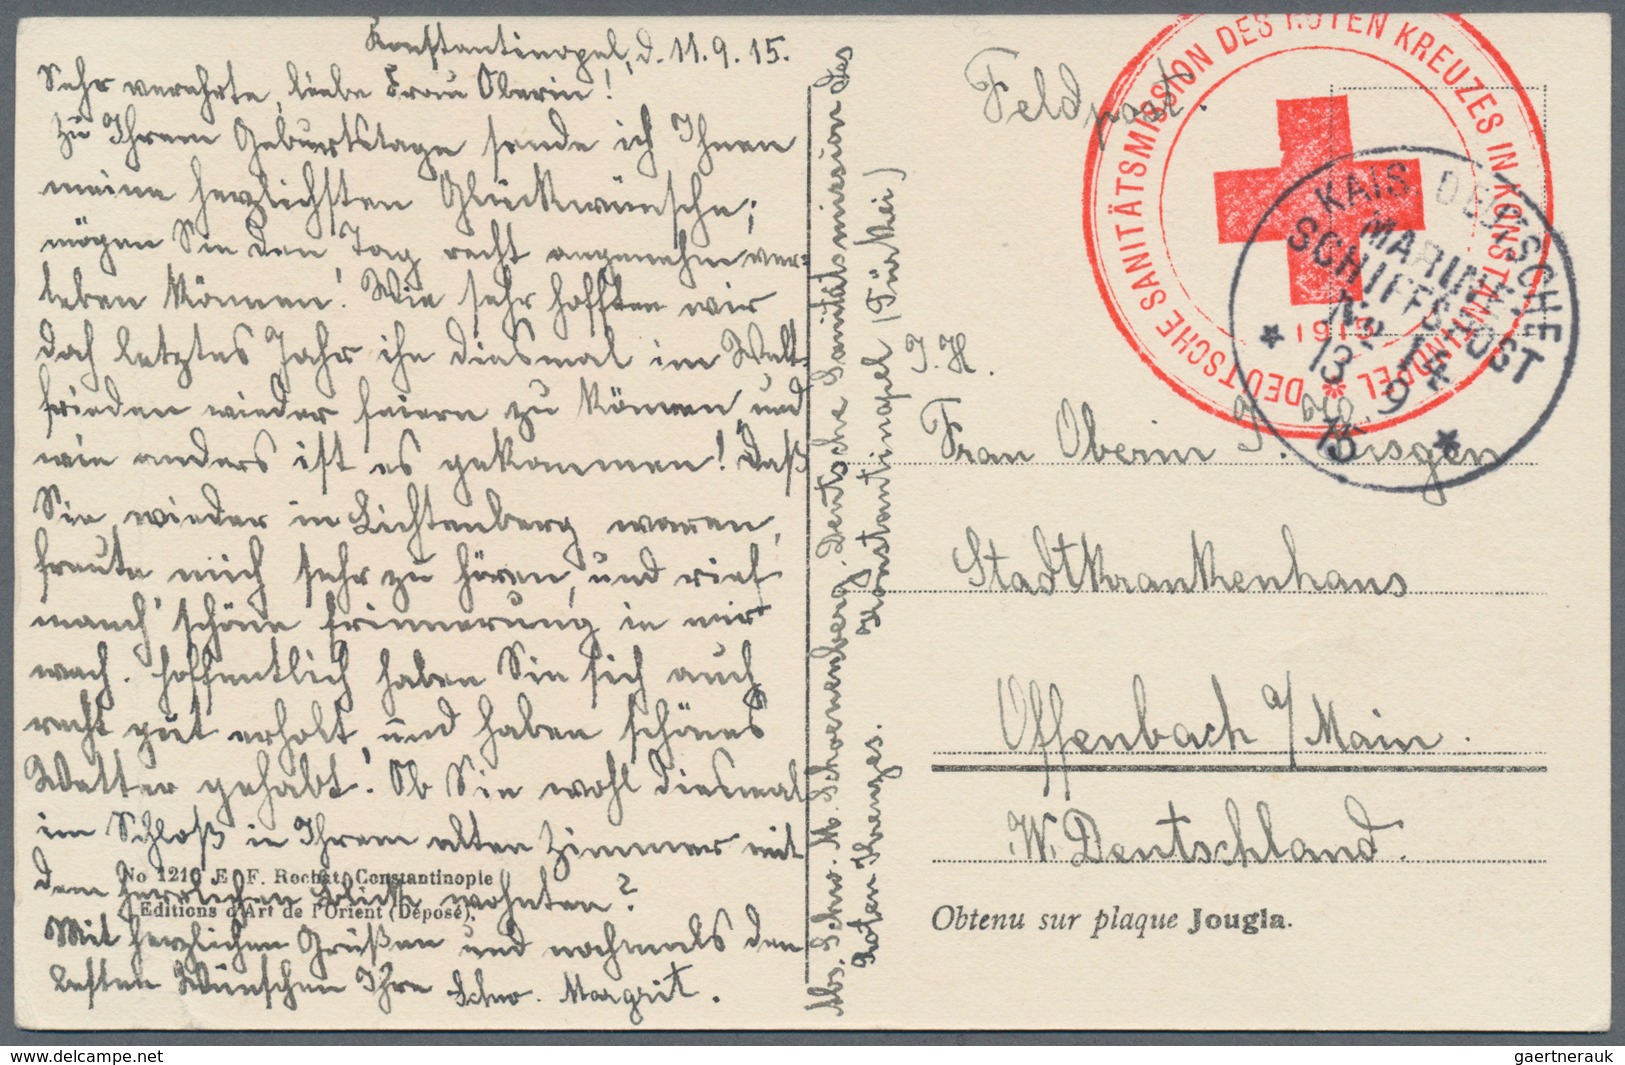 Konstantinopel, d. 11.9.15.
Sehr verehrte, liebe Frau Oberin!
Zu Ihrem Geburtstage sende ich Ihnen
meine herzlichsten Glückwünsche;
mögen Sie den Tag recht angenehm ver-
leben können! Wie sehr hofften wir
doch letztes Jahr ihn diesmal im Welt-
frieden wieder feiern zu können, und
wie anders ist es gekommen! Daß
Sie wieder in Lichtenberg waren,
freute mich sehr zu hören, und rief
manch' schöne Erinnerung in mir
wach. Hoffentlich haben Sie sich auch
recht gut erholt, und haben schönes
Wetter gehabt! Ob Sie wohl diesmal
im Schloß in Ihrem alten Zimmer mit
dem herrlichen Blicke wohnten?
Mit herzlichen Grüßen und nochmals den
besten Wünschen Ihre Schw. Margrit.
No 1216 E. F. Rochat, Constantinople
Editions d'Art de l'Orient (Déposé).
Abs. Schw. M. Schoenenberg. Deutsche Sanitätsmission des
Roten Kreuzes. Konstantinopel (Türkei)
Feldpost.
DEUTSCHE SANITÄTSMISSION DES ROTEN KREUZES IN KONSTANTINOPEL
1915
KAIS. DEUTSCHE
MARINE-
SCHIFFSPOST
No 14
13 9
15
I. H.
Frau Oberin
Stadtkrankenhaus
Offenbach a/Main.
W. Deutschland.
Obtenu sur plaque Jougla.
www.delcampe.net
gaertnerauk